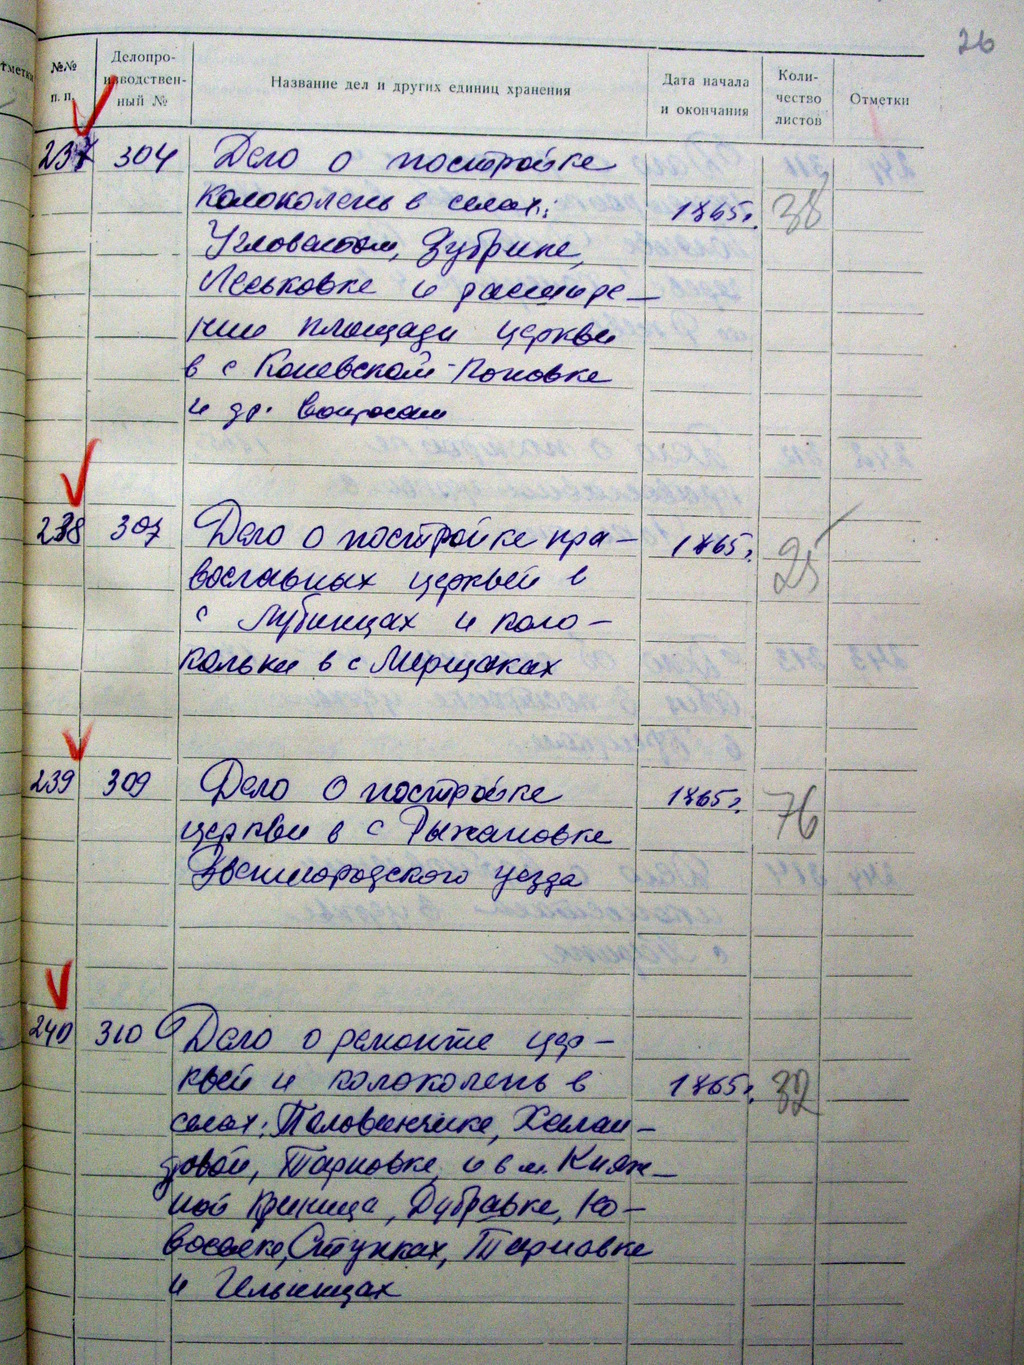 26
№№ п. п.
Делопро-
изводствен-
ный №
Название дел и других единиц хранения
Дата начала
и окончания
Коли-
чество
листов
Отметки
237 304 Дело о постройке
колоколень в селах: 1865г. 38
Угловатом, Зубрихе,
Песьковке и расшире-
нии площади церкви
в с Коневской-Поповке
и др. вопросам
238 307 Дело о постройке пра- 1865г. 25
вославных церквей в
с Лубинцах и коло-
кольни в с Мерщаках
239 309 Дело о постройке 1865г. 76
церкви в с Рыжановке
Звенигородского уезда
240 310 Дело о ремонте цер-
квей и колоколень в 1865г. 32
селах: Половинчике, Халаи-
довой, Тарновке и в м. Княж-
ной Кринице, Дубравке, Но-
воселке, Ступках, Тарновке
и Ильинцах